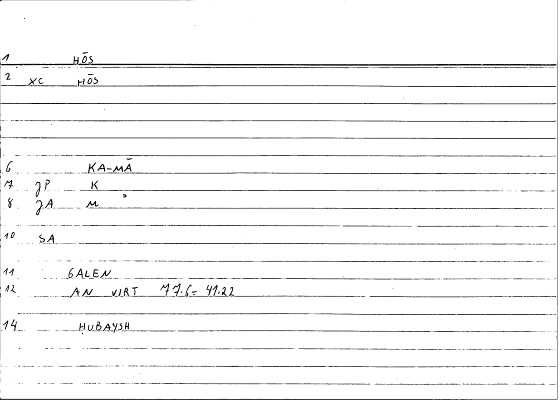 1 HŌS
2 XC HŌS
6 KA-MĀ
7 JP K
8 JA M
10 SA
11 GALEN
12 AN VIRT 77.6= 41.22
14 HUBAYSH